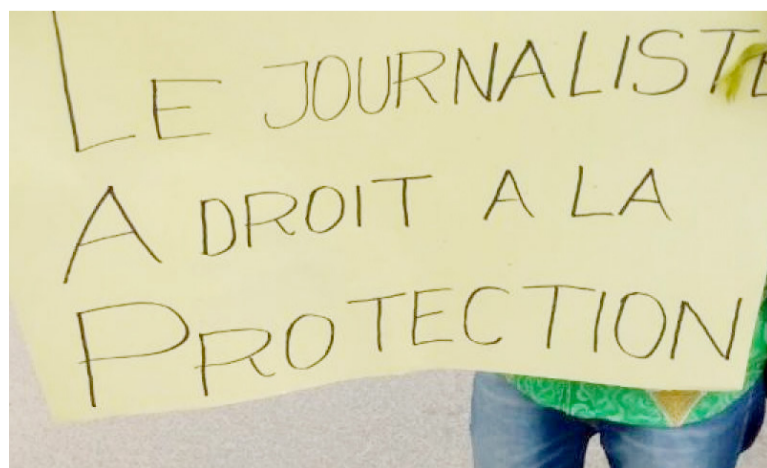 LE JOURNALISTE
A DROIT A LA
PROTECTION